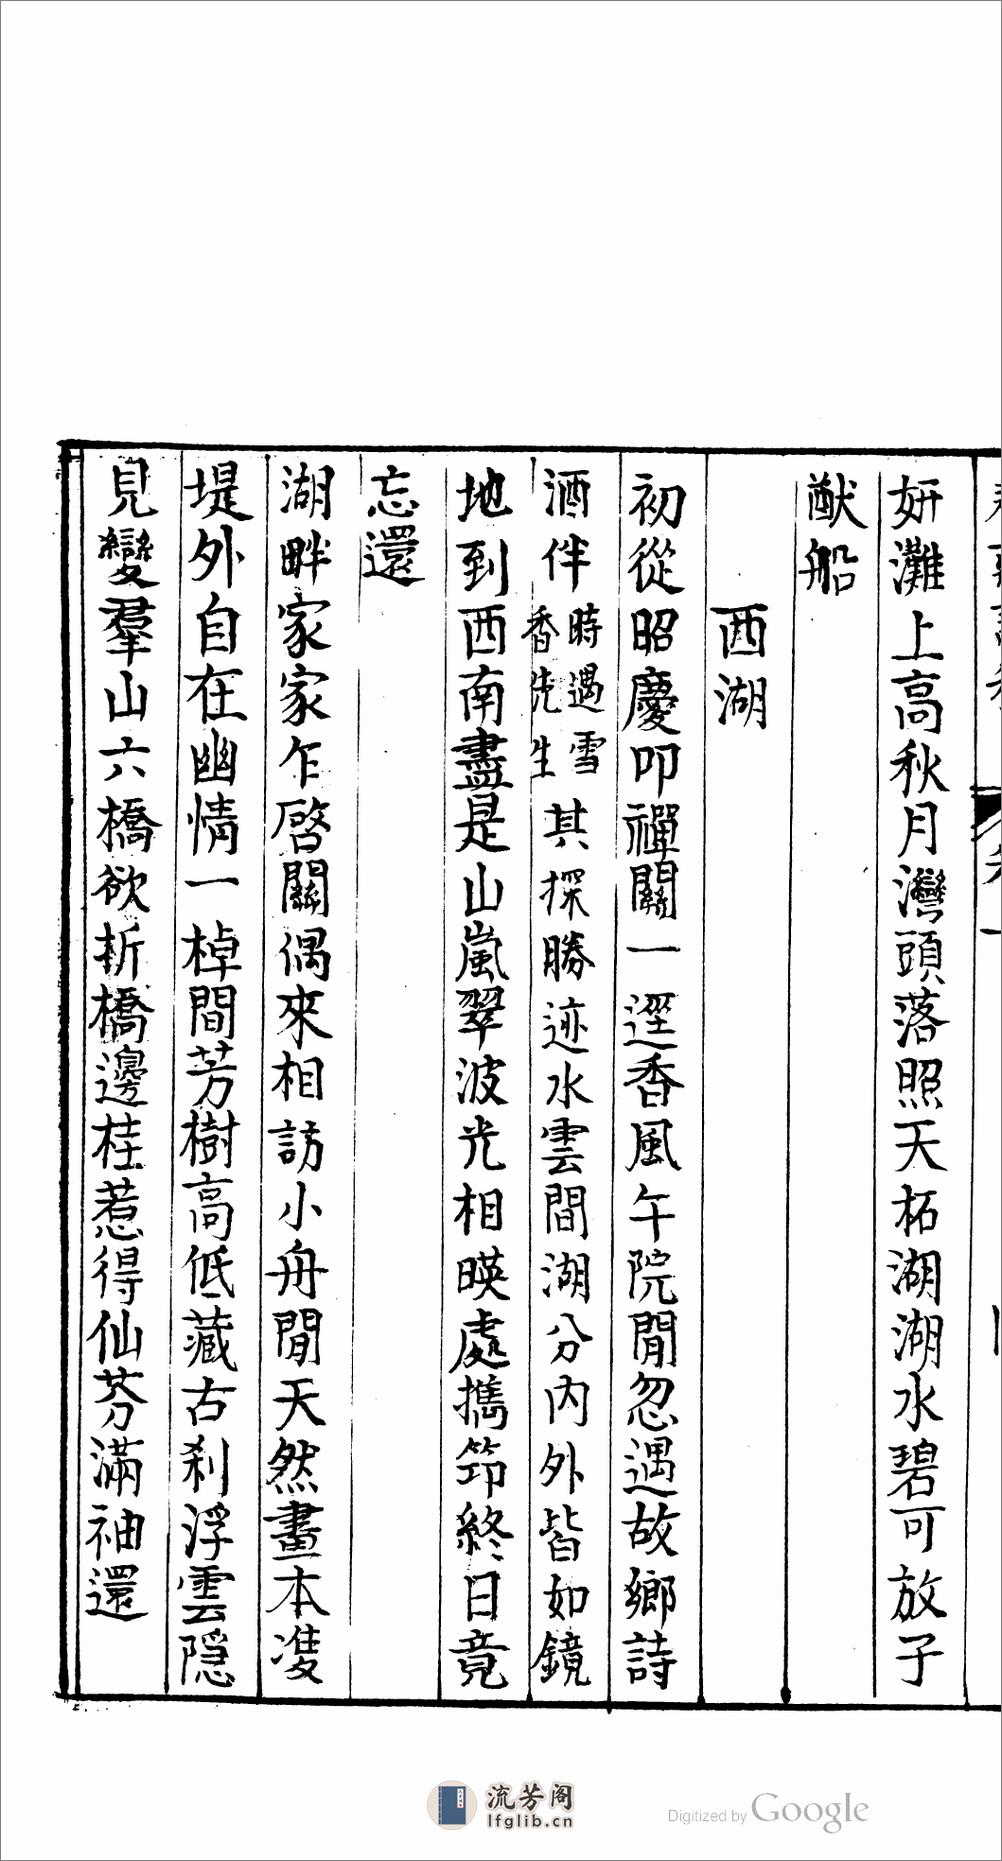 妍灘上高秋月灣頭落照天柘湖湖水碧可放子
猷船
西湖
初從昭慶叩禪關一逕香風午院閒忽遇故鄉詩
酒伴時遇雪香先生其探勝迹水雲間湖分內外皆如鏡
地到西南盡是山嵐翠波光相暎處攜筇終日竟
忘還
湖畔家家乍啓關偶來相訪小舟閒天然畫本凌
堤外自在幽情一棹間芳樹高低藏古刹浮雲隱
見變羣山六橋欲折橋邊桂惹得仙芬滿袖還
流芳阁
lfglib.cn
Digitized by Google